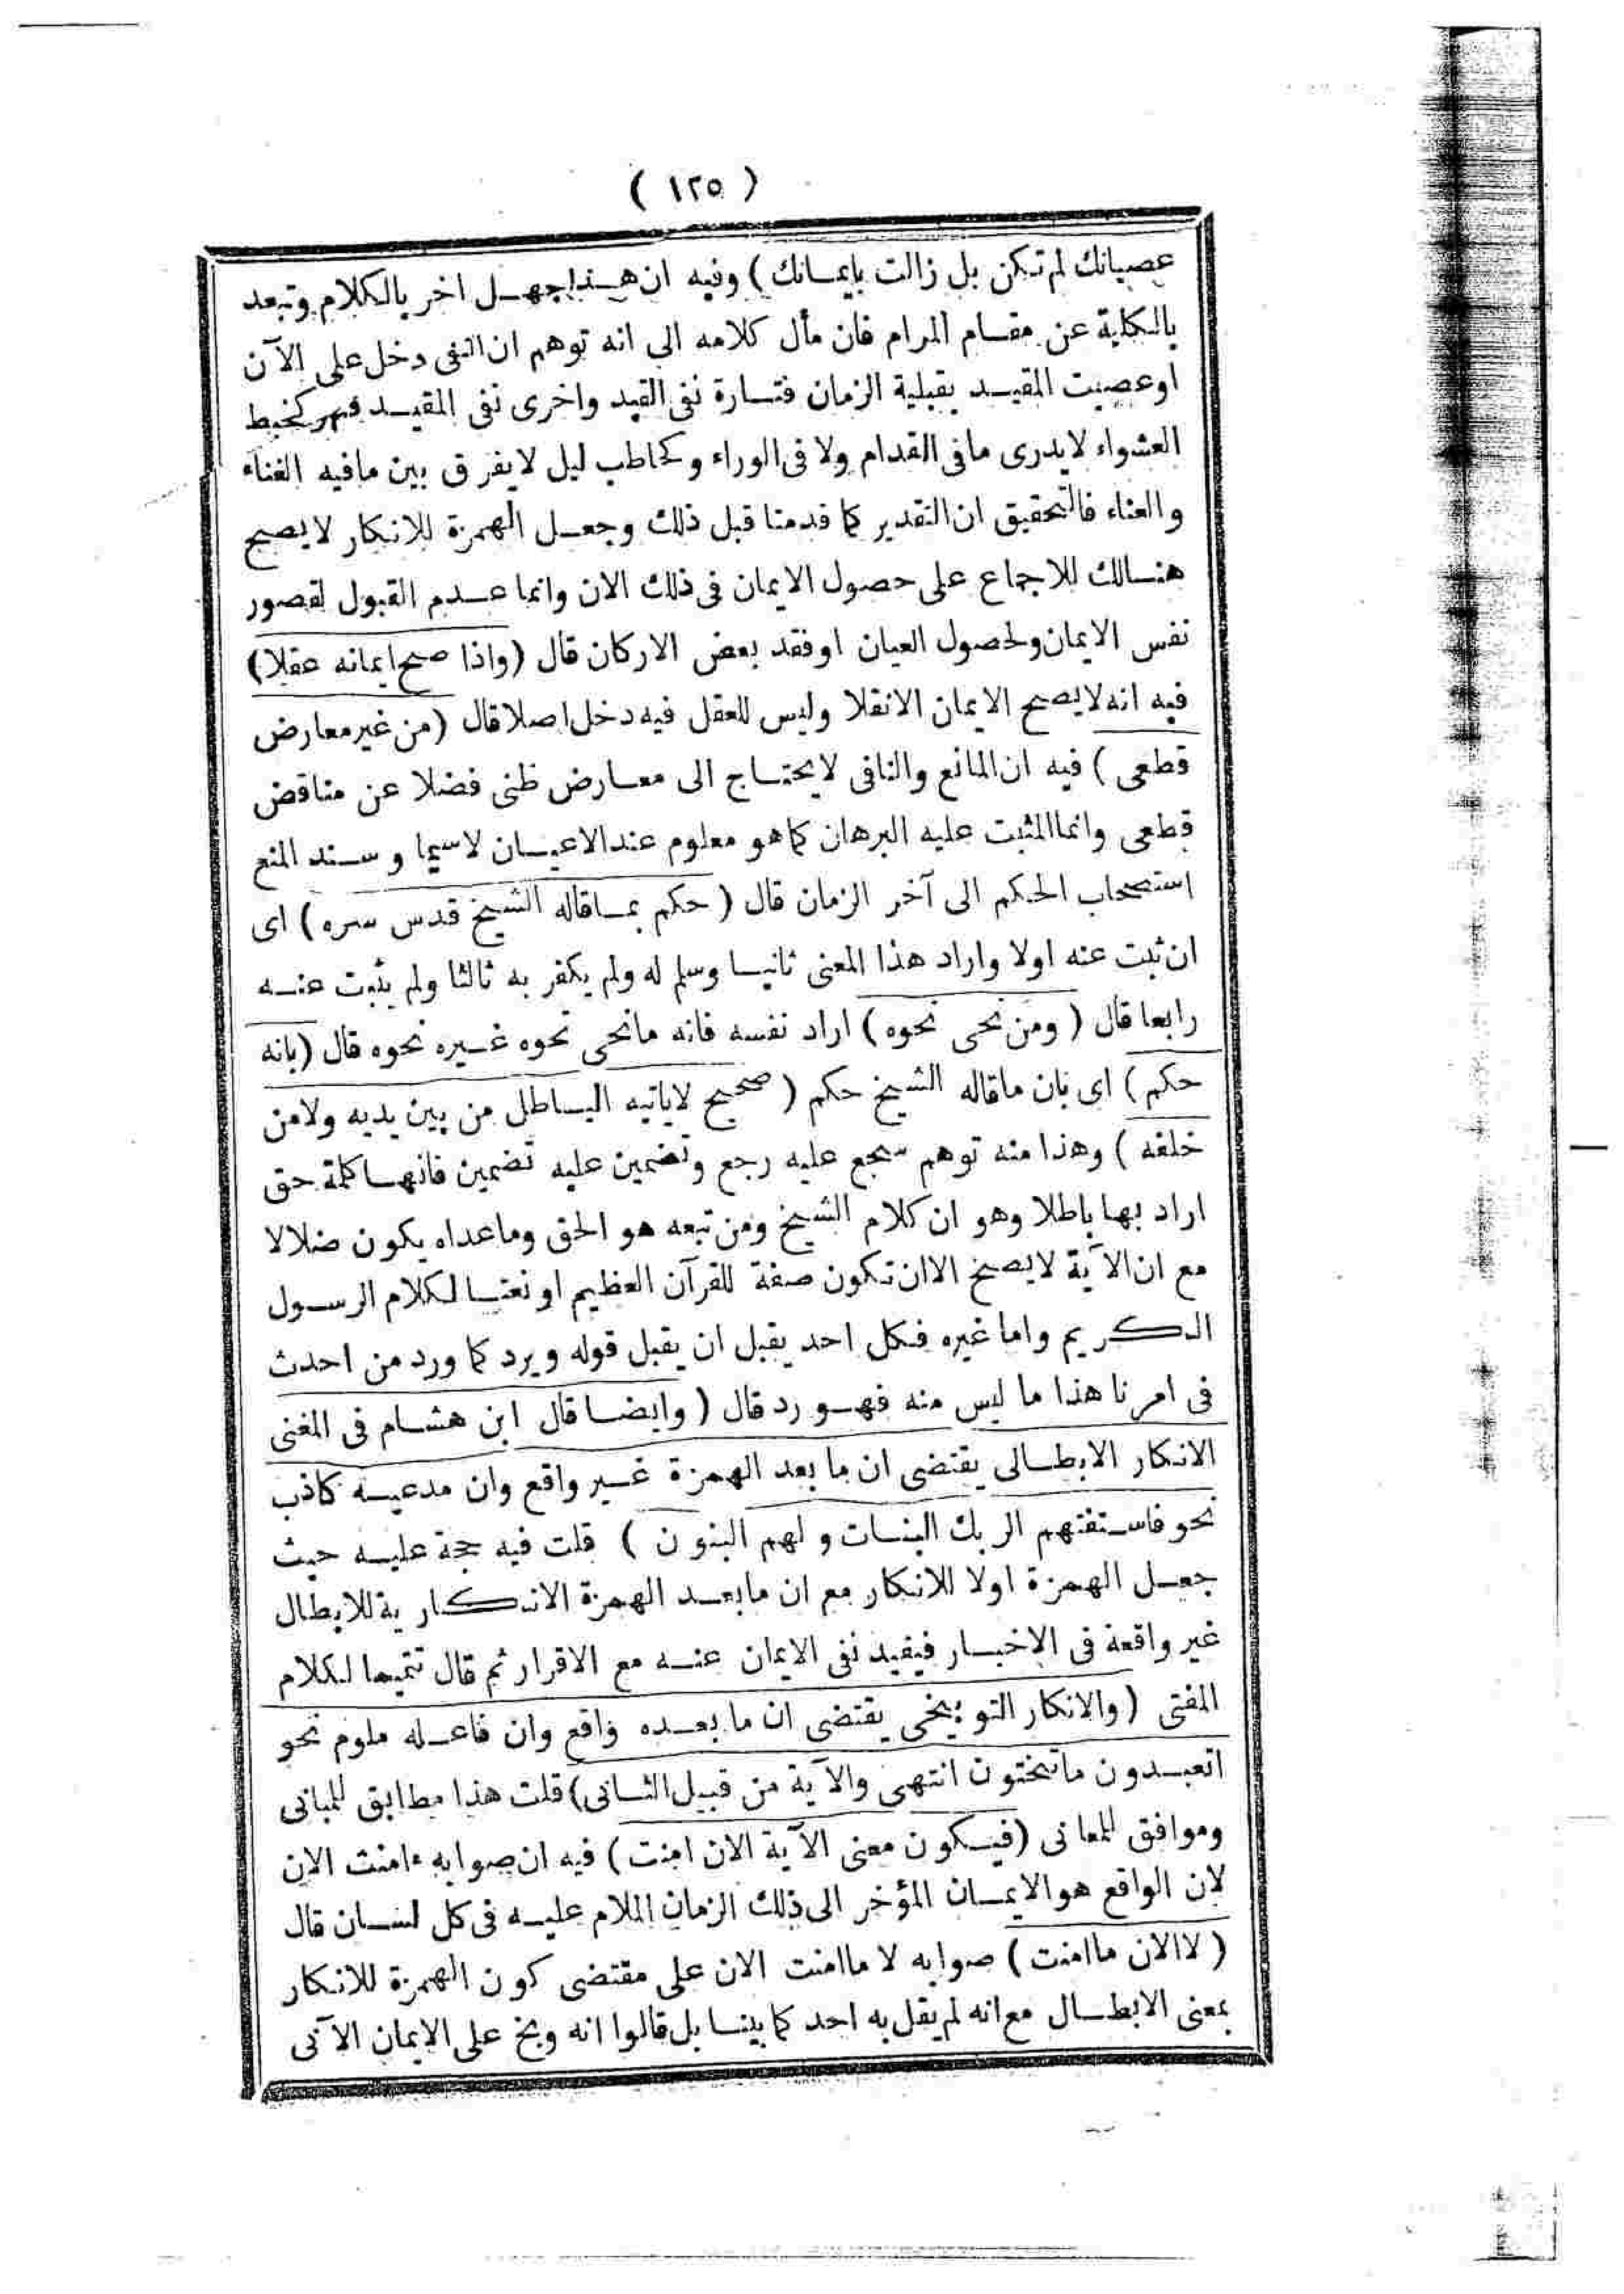 ( ١٢٥ )
عصيانك لم تكن بل زالت بايمانك ) وفيه ان هذا جهل اخر بالكلام وتبعد
بالكلية عن مقام المرام فان مأل كلامه الى انه توهم ان النفى دخل على الآن
او عصيت المقيد بقبلية الزمان فتارة نفى القيد واخرى نفى المقيد فهو كخبط
العشواء لا يدرى ما فى القدام ولا فى الوراء وكحاطب ليل لا يفرق بين ما فيه الغناء
والعناء فالتحقيق ان التقدير كما قدمنا قبل ذلك وجعل الهمزة للانكار لا يصح
هنالك للاجماع على حصول الايمان فى ذلك الان وانما عدم القبول لقصور
نفس الايمان ولحصول العيان او فقد بعض الاركان قال (واذا صح ايمانه عقلا)
فيه انه لا يصح الايمان الا نقلا وليس للعقل فيه دخل اصلا قال (من غير معارض
قطعى ) فيه ان المانع والنافى لا يحتاج الى معارض ظنى فضلا عن مناقض
قطعى وانما المثبت عليه البرهان كما هو معلوم عند الاعيان لا سيما وسند المنع
استصحاب الحكم الى آخر الزمان قال ( حكم بما قاله الشيخ قدس سره ) اى
ان ثبت عنه اولا واراد هذا المعنى ثانيا وسلم له ولم يكفر به ثالثا ولم يثبت عنه
رابعا قال ( ومن نحى نحوه ) اراد نفسه فانه ما نحى نحوه غيره نحوه قال (بانه
حكم ) اى بان ما قاله الشيخ حكم ( صحيح لا ياتيه الباطل من بين يديه ولا من
خلفه ) وهذا منه توهم سجع عليه رجع وتضمين عليه تضمين فانها كلمة حق
اراد بها باطلا وهو ان كلام الشيخ ومن تبعه هو الحق وما عداه يكون ضلالا
مع ان الآية لا يصح الا ان تكون صفة للقرآن العظيم او نعتا لكلام الرسول
الكريم واما غيره فكل احد يقبل ان يقبل قوله ويرد كما ورد من احدث
فى امرنا هذا ما ليس منه فهو رد قال ( وايضا قال ابن هشام فى المغنى
الانكار الابطالى يقتضى ان ما بعد الهمزة غير واقع وان مدعيه كاذب
نحو فاستفتهم الربك البنات ولهم البنون ) قلت فيه حجة عليه حيث
جعل الهمزة اولا للانكار مع ان ما بعد الهمزة الانكارية للابطال
غير واقعة فى الاخبار فيفيد نفى الايمان عنه مع الاقرار ثم قال تتميما لكلام
المغنى ( والانكار التوبيخى يقتضى ان ما بعده واقع وان فاعله ملوم نحو
اتعبدون ما تنحتون انتهى والآية من قبيل الثانى) قلت هذا مطابق للمبانى
وموافق للمعانى (فيكون معنى الآية الان امنت ) فيه ان صوابه ءامنت الان
لان الواقع هو الايمان المؤخر الى ذلك الزمان الملام عليه فى كل لسان قال
( لا الان ما امنت ) صوابه لا ما امنت الان على مقتضى كون الهمزة للانكار
بمعنى الابطال مع انه لم يقل به احد كما بينا بل قالوا انه وبخ على الايمان الآنى